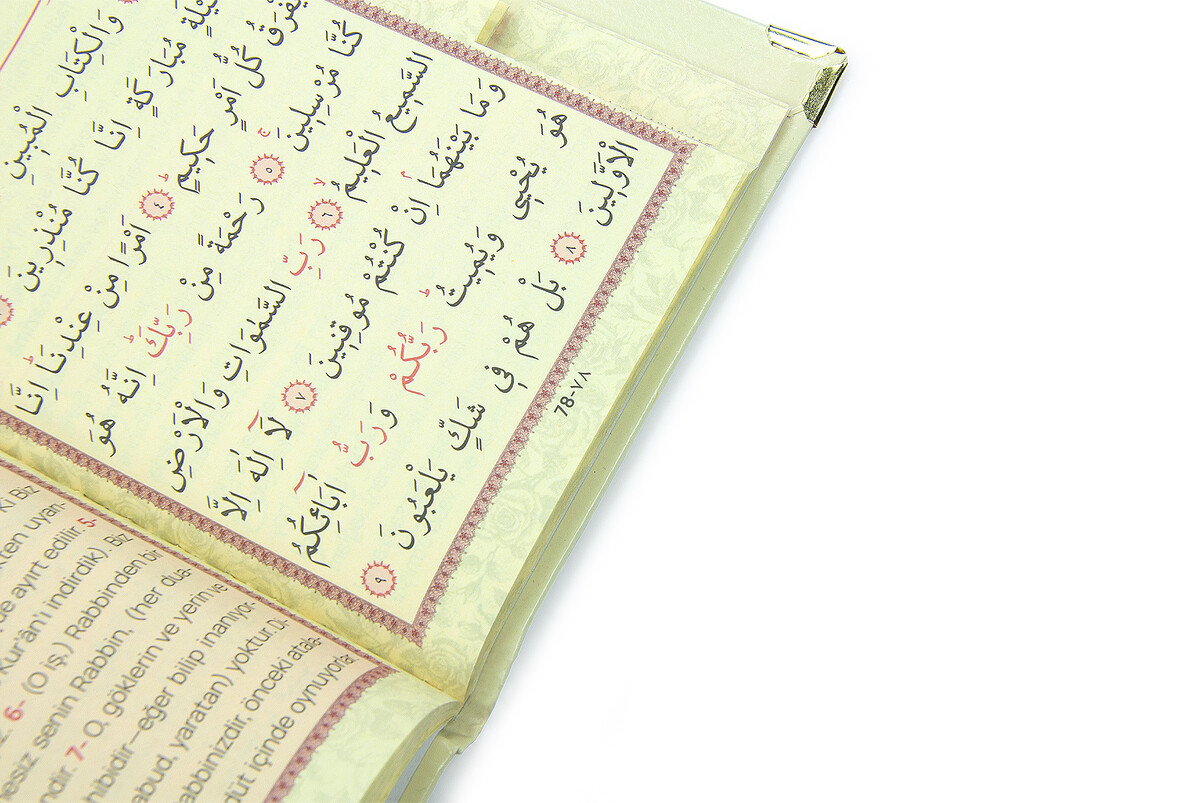 وَالْكِتَابِ الْمُبِينِ
مُبَارَكَةٍ اِنَّا كُنَّا مُنْذِرِينَ
يُفْرَقُ كُلُّ اَمْرٍ حَكِيمٍ ٤ اَمْرًا مِنْ عِنْدِنَا اِنَّا
كُنَّا مُرْسِلِينَ ٥ رَحْمَةً مِنْ رَبِّكَ اِنَّهُ هُوَ
السَّمِيعُ الْعَلِيمُ ٦ رَبِّ السَّمٰوَاتِ وَالْاَرْضِ
وَمَا بَيْنَهُمَا اِنْ كُنْتُمْ مُوقِنِينَ ٧ لَٓا اِلٰهَ اِلَّا
هُوَ يُحْيِى وَيُمِيتُ رَبُّكُمْ وَرَبُّ اٰبَٓائِكُمُ
الْاَوَّلِينَ ٨ بَلْ هُمْ فِى شَكٍّ يَلْعَبُونَ ٩
78-٧٨
Ki Biz
uyan-
de ayırt edilir. 5-
Kur'ân'ı indirdik). Biz
6- (O iş,) Rabbinden bir
senin Rabbin, (her dua-
7- O, göklerin ve yerin ve
eğer bilip inanıyor-
yaratan) yoktur. Di-
önceki atala-
içinde oynuyorlar.